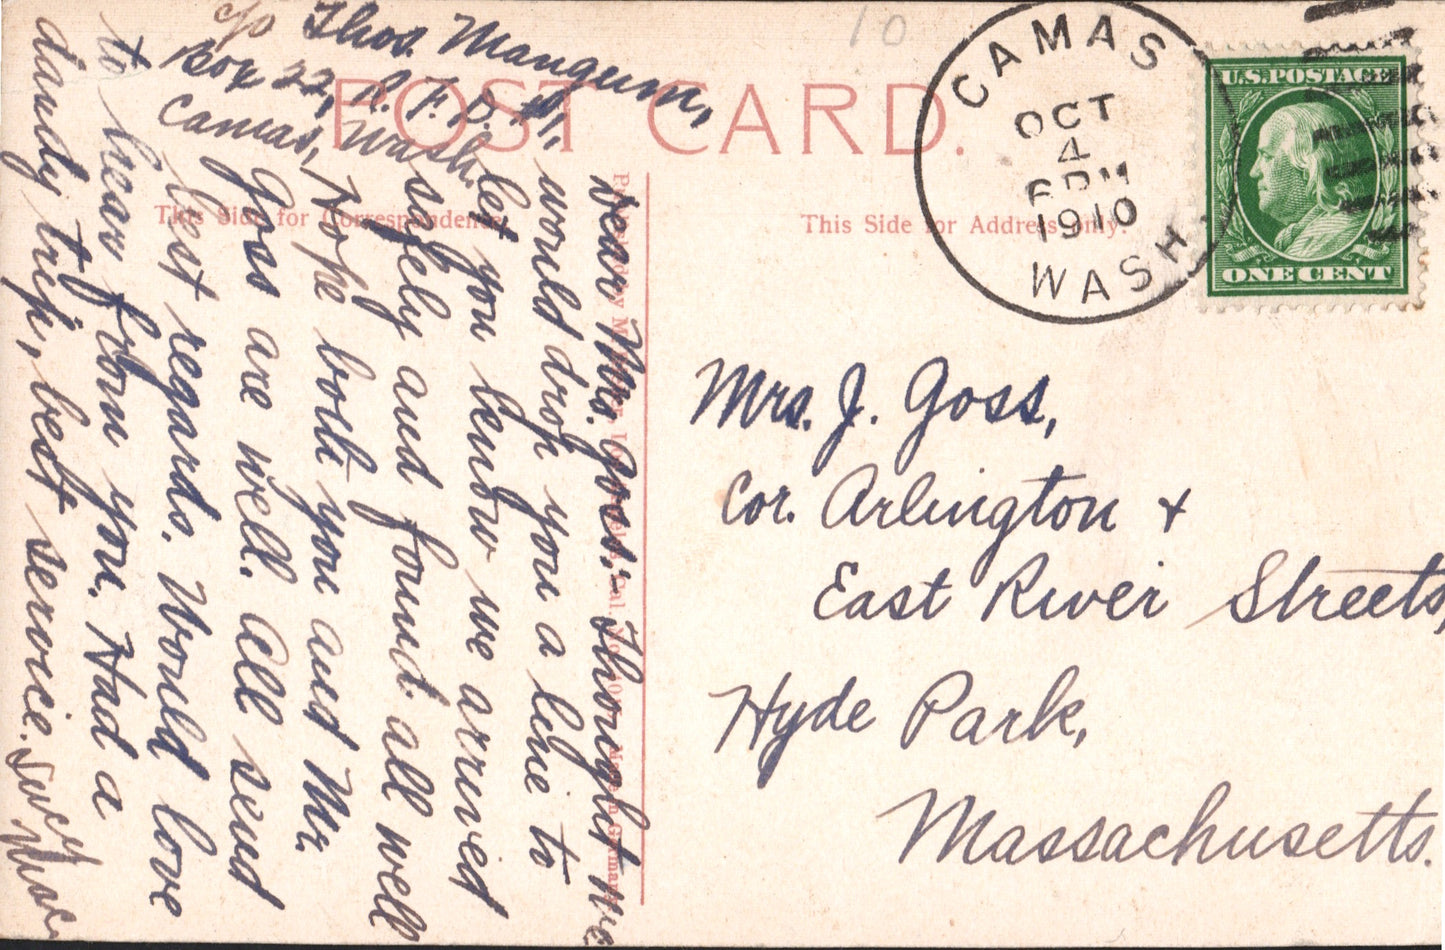 10
c/o Thos. Mangum,
Box 22, R. F. D. #1,
Camas, Wash.
POST CARD.
This Side for Correspondence
This Side for Address only.
CAMAS
OCT
4
6 PM
1910
WASH.
U.S.POSTAGE
ONE CENT
Dear Mrs. Goss:- Thought we
would drop you a line to
let you know we arrived
safely and found all well
Hope both you and Mr.
Goss are well. All send
best regards. Would love
to hear from you. Had a
dandy trip, best service. Lucy
Mrs. J. Goss,
Cor. Arlington +
East River Streets,
Hyde Park,
Massachusetts.
Made in Germany